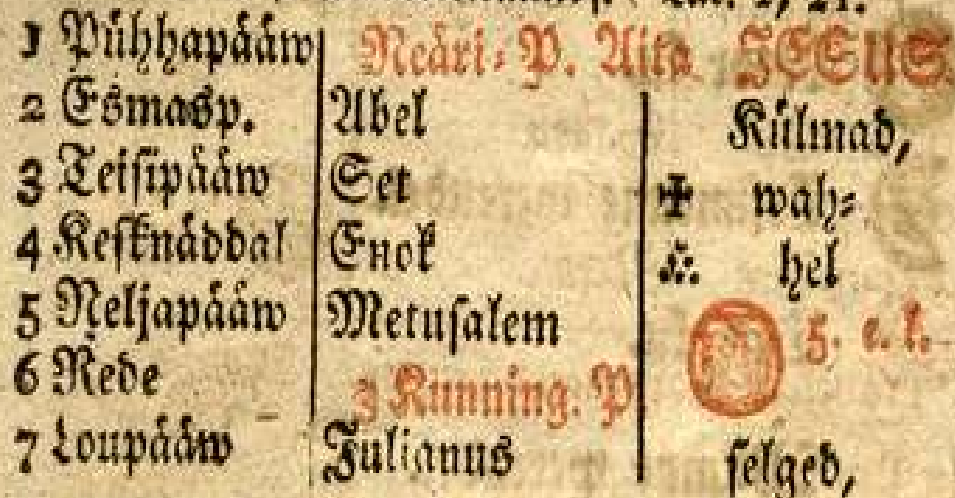 1 Pühhapääw Neäri-P. Aita JEEsUS
2 Esmasp. Abel Külmad,
3 Teisipääw Set ✠ wah-
4 Kesknäddal Enok hel
5 Neljapääw Metusalem 5. e. k.
6 Rede 3 Kunning. P
7 Loupääw Julianus selged,